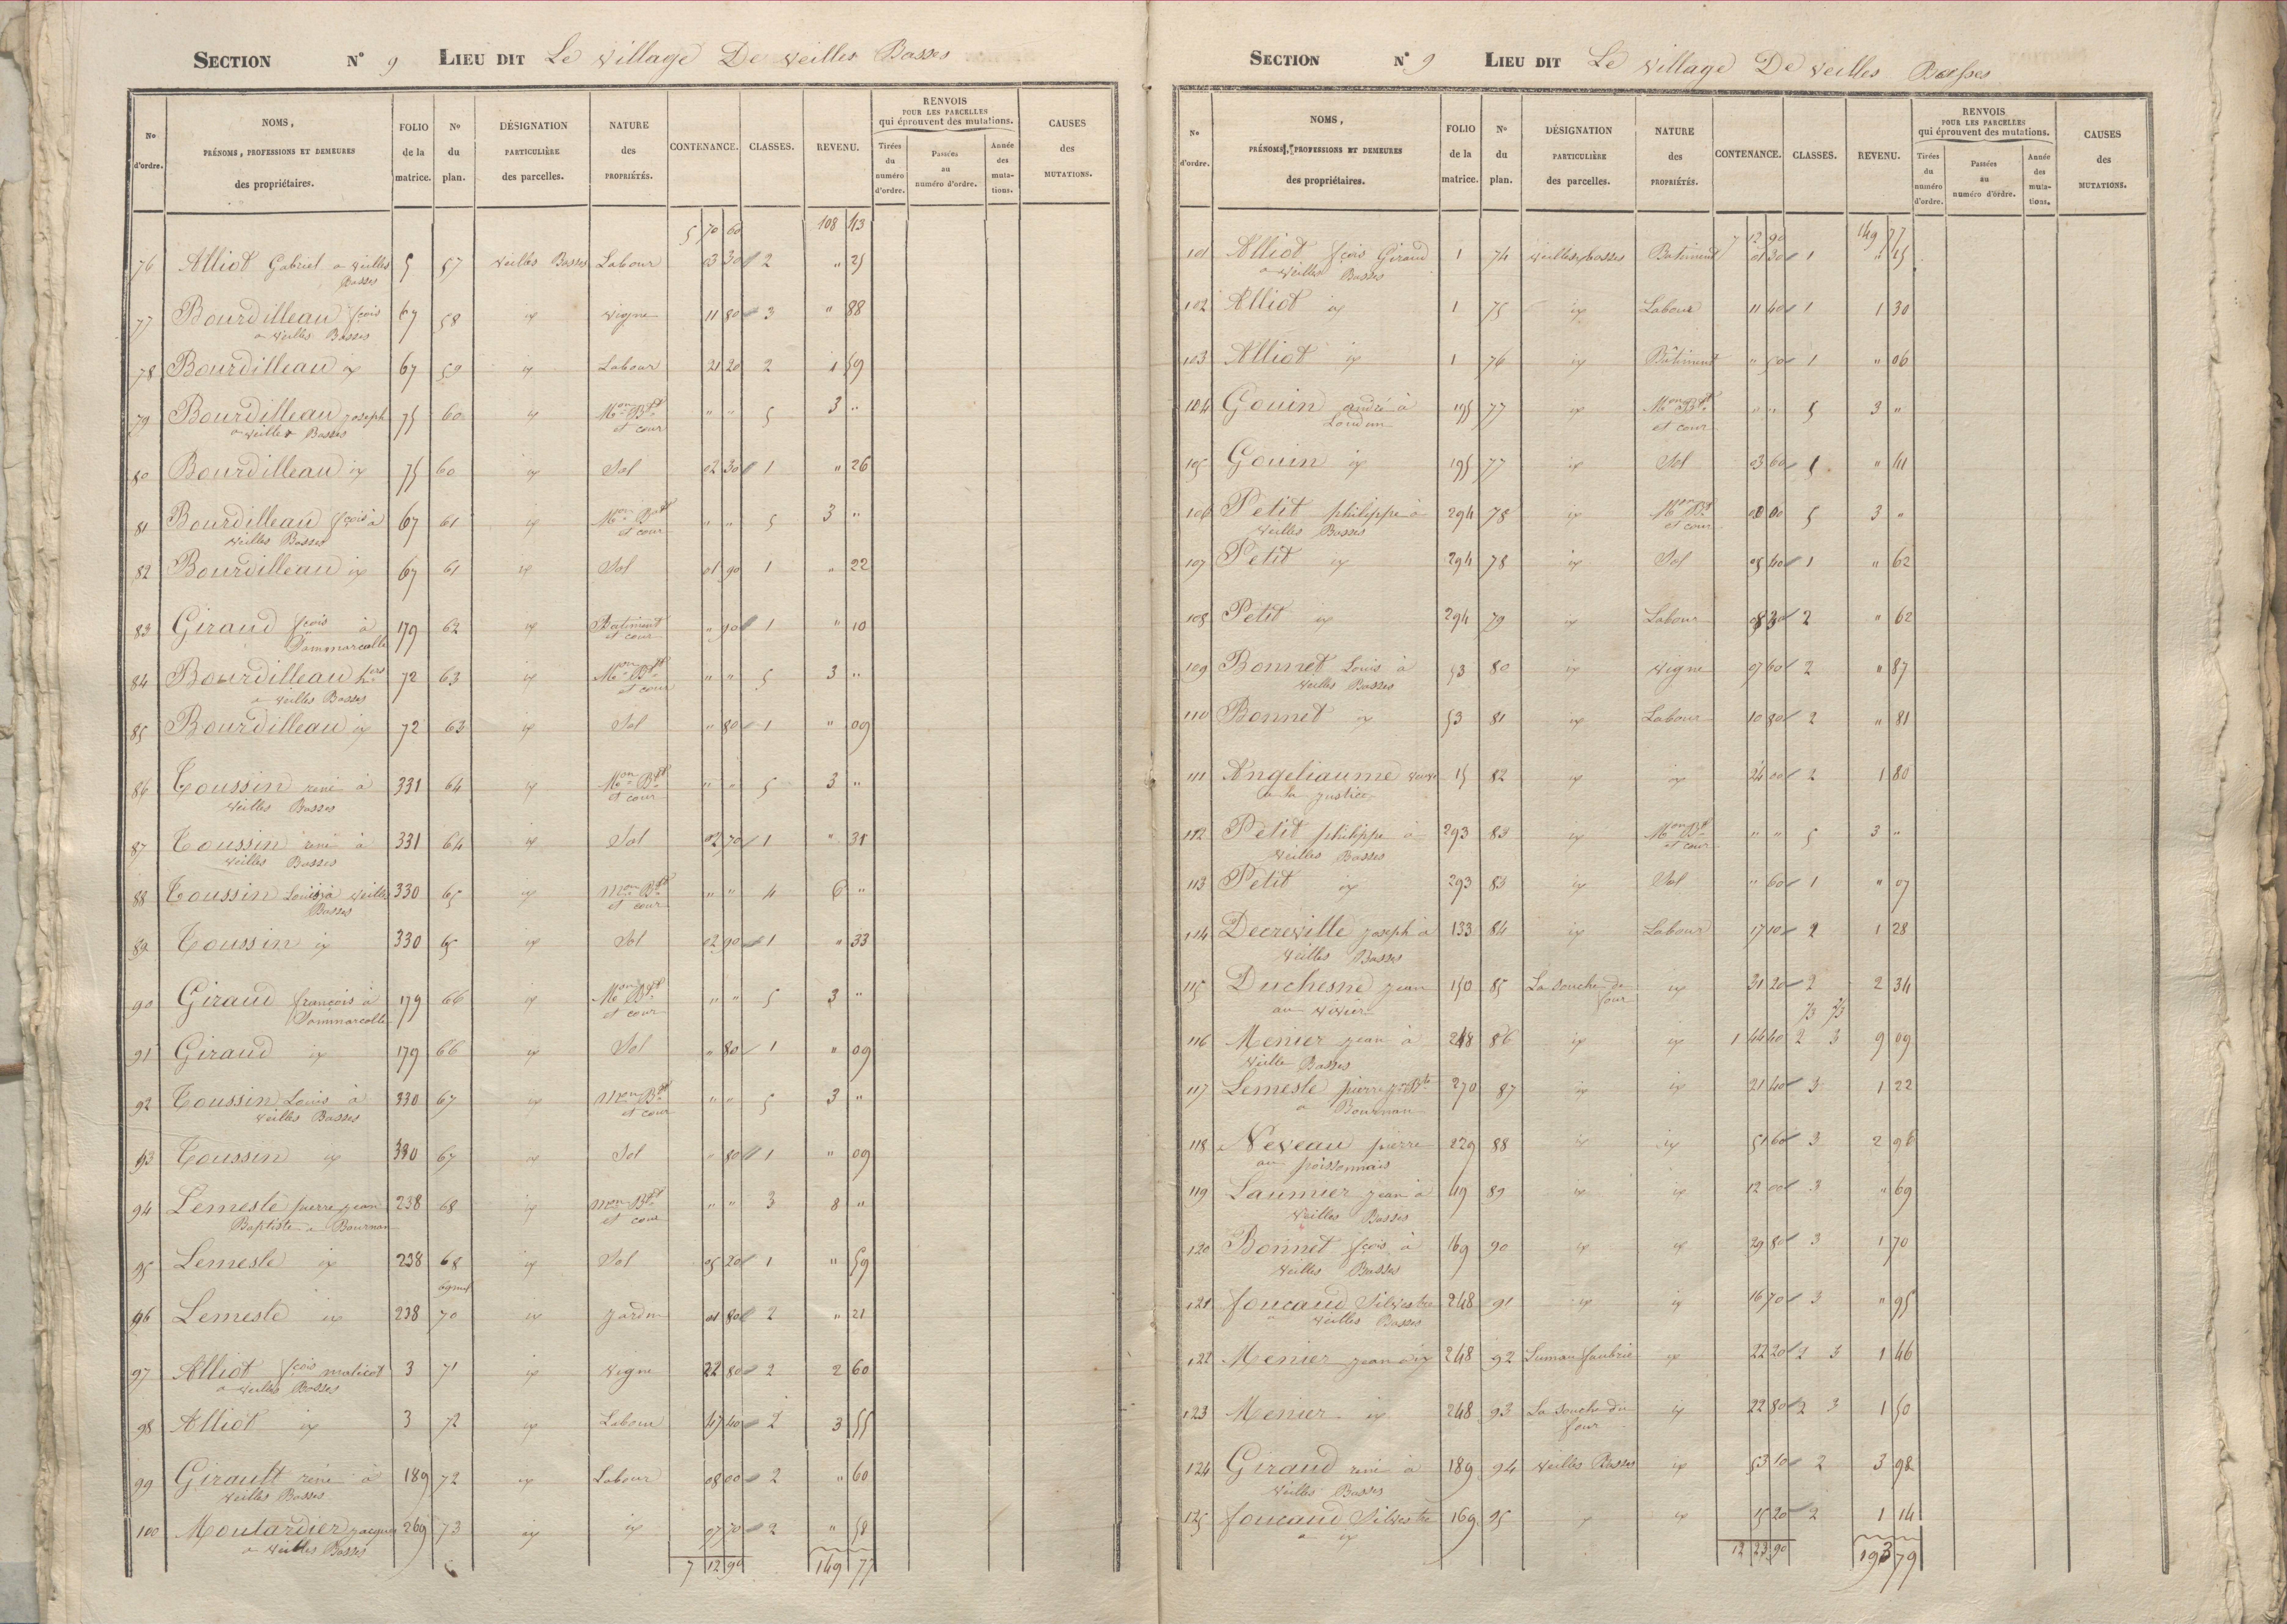 SECTION N° 9 LIEU DIT Le village De veilles Basses
N° d'ordre. NOMS, PRÉNOMS, PROFESSIONS ET DEMEURES des propriétaires. FOLIO de la matrice. N° du plan. DÉSIGNATION PARTICULIÈRE des parcelles. NATURE des PROPRIÉTÉS. CONTENANCE. CLASSES. REVENU. RENVOIS POUR LES PARCELLES qui éprouvent des mutations. Tirées du numéro d'ordre. Passées au numéro d'ordre. Année des muta-tions. CAUSES des MUTATIONS.
5 70 60 108 43
76 Alliot Gabriel a veilles 5 57 veilles Basses Labour 03 30 2 " 25
Basses
77 Bourdilleau fçois 67 58 id vigne 11 80 3 " 88
a veilles Basses
78 Bourdilleau id 67 59 id Labour 21 20 2 1 59
79 Bourdilleau joseph 75 60 id Mon Bt " " 5 3 "
a veilles Basses et cour
80 Bourdilleau id 75 60 id Sol 02 30 1 " 26
81 Bourdilleau fçois à 67 61 id Mon Bt " " 5 3 "
veilles Basses et cour
82 Bourdilleau id 67 61 id Sol 01 90 1 " 22
83 Giraud fçois à 179 62 id Batiment " 90 1 " 10
Sammarcolle et cour
84 Bourdilleau hers 72 63 id Mon Bt " " 5 3 "
a veilles Basses et cour
85 Bourdilleau id 72 63 id Sol " 80 1 " 09
86 Toussin rené à 331 64 id Mon Bt " " 5 3 "
veilles Basses et cour
87 Toussin rené à 331 64 id Sol 02 70 1 " 31
veilles Basses
88 Toussin Louis à veilles 330 65 id Mon Bt " " 4 6 "
Basses et cour
89 Toussin id 330 65 id Sol 02 90 1 " 33
90 Giraud françois à 179 66 id Mon Bt " " 5 3 "
Sammarcolle et cour
91 Giraud id 179 66 id Sol " 80 1 " 09
92 Toussin Louis à 330 67 id Mon Bt " " 5 3 "
veilles Basses et cour
93 Toussin id 330 67 id Sol " 80 1 " 09
94 Lemesle pierre jean 238 68 id Mon Bt " " 3 8 "
Baptiste a Bournan et cour
95 Lemesle id 238 68 id Sol 05 20 1 " 59
96 Lemesle id 238 70 id jardin 01 80 2 " 21
97 Alliot fçois malicot 3 71 id vigne 22 80 2 2 60
a veilles Basses
98 Alliot id 3 72 id Labour 47 40 2 3 55
99 Girault rené à 189 72 id Labour 08 00 2 " 60
veilles Basses
100 Moutardier jacques 269 73 id id 07 70 2 " 58
a veilles Basses
7 12 90 149 77
SECTION N° 9 LIEU DIT Le village De veilles Basses
N° d'ordre. NOMS, PRÉNOMS, PROFESSIONS ET DEMEURES des propriétaires. FOLIO de la matrice. N° du plan. DÉSIGNATION PARTICULIÈRE des parcelles. NATURE des PROPRIÉTÉS. CONTENANCE. CLASSES. REVENU. RENVOIS POUR LES PARCELLES qui éprouvent des mutations. Tirées du numéro d'ordre. Passées au numéro d'ordre. Année des muta-tions. CAUSES des MUTATIONS.
7 12 90 149 77
101 Alliot fçois Giraud 1 74 veilles basses Batiment 01 30 1 " 15
a veilles Basses
102 Alliot id 1 75 id Labour 11 40 1 1 30
103 Alliot id 1 76 id Bâtiment " 50 1 " 06
104 Gouin andré à 195 77 id Mon Bt " " 5 3 "
Loudun et cour
105 Gouin id 195 77 id Sol 03 60 1 " 41
106 Petit philippe à 294 78 id Mon Bt 00 00 5 3 "
veilles Basses et cour
107 Petit id 294 78 id Sol 05 40 1 " 62
108 Petit id 294 79 id Labour 08 30 2 " 62
109 Bonnet Louis à 53 80 id vigne 07 60 2 " 87
veilles Basses
110 Bonnet id 53 81 id Labour 10 80 2 " 81
111 Angeliaume veuve 15 82 id id 24 00 2 1 80
a la justice
112 Petit philippe à 293 83 id Mon Bt " " 5 3 "
veilles Basses et cour
113 Petit id 293 83 id Sol " 60 1 " 07
114 Decreville joseph à 133 84 id Labour 17 10 2 1 28
veilles Basses
115 Duchesne jean 150 85 La souche du id 31 20 2 2 34
au vivier four
116 Menier jean à 248 86 id id 1 44 40 2 3 9 09
veille Basses
117 Lemesle pierre jn Bte 270 87 id id 21 40 3 1 22
a Bournan
118 Neveau pierre 229 88 id id 51 60 3 2 96
au poissonnais
119 Saumier jean à 49 89 id id 12 00 3 " 69
veilles Basses
120 Bonnet fçois à 169 90 id id 29 80 3 1 70
veilles Basses
121 foucaud Silvestre 248 91 id id 16 70 3 " 95
a veilles Basses
122 Menier jean à id 248 92 id 22 20 2 3 1 46
123 Menier id 248 93 La souche du id 22 80 2 3 1 50
four
124 Giraud rené à 189 94 veilles Basses id 53 10 2 3 98
veilles Basses
125 foucaud Silvestre 169 95 id id 15 20 2 1 14
a id
12 23 90 193 79